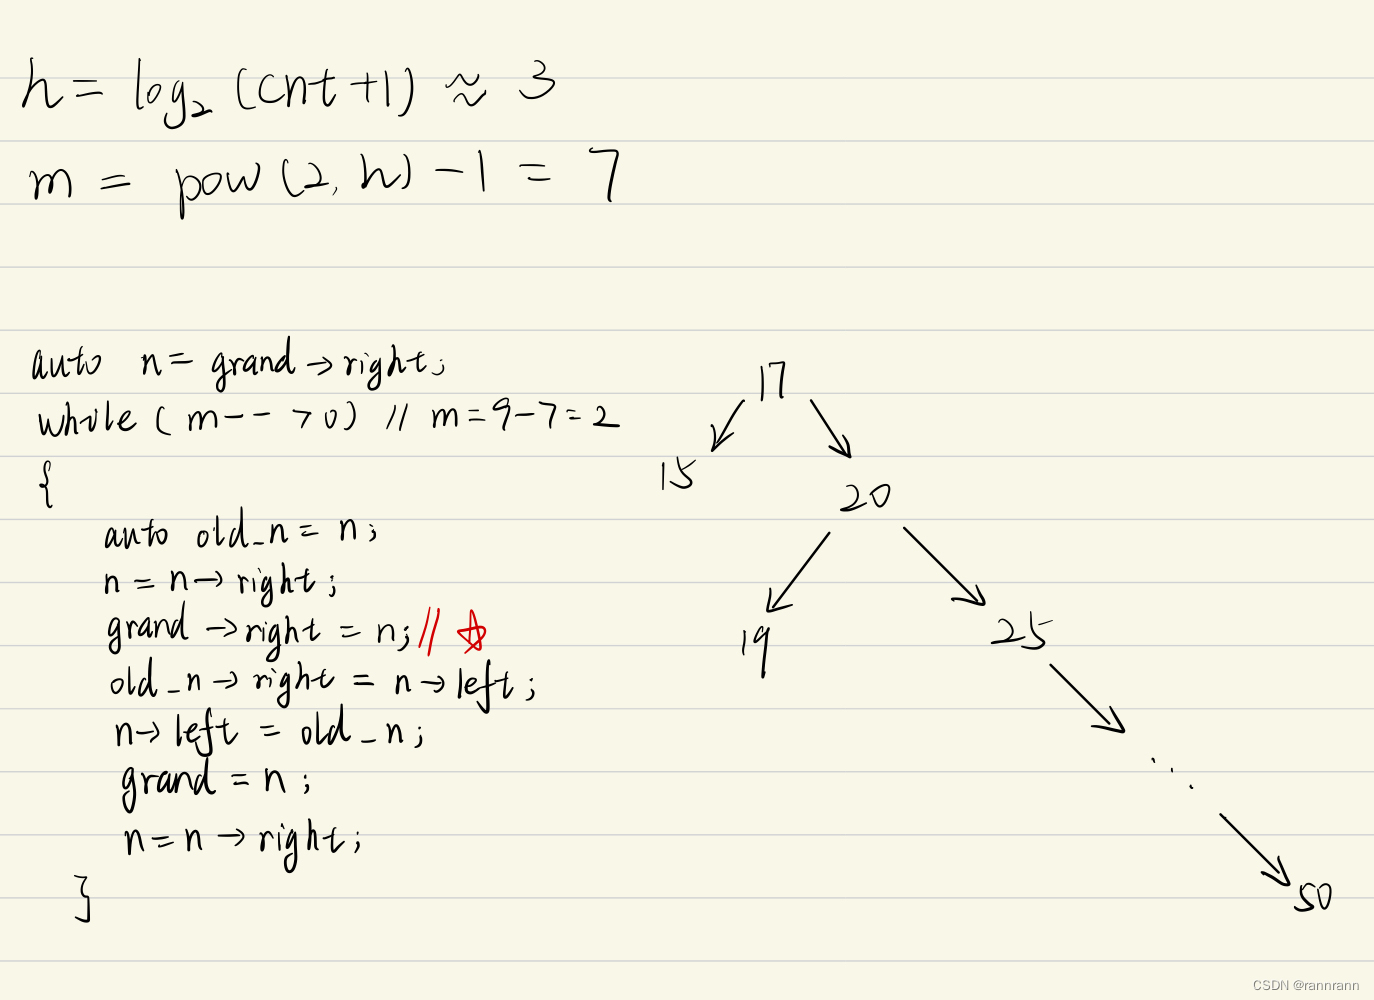 h = log₂ (cnt+1) ≈ 3
m = pow(2, h) - 1 = 7
auto n = grand → right;
while ( m-- > 0) // m=9-7=2
{
auto old_n = n;
n = n → right;
grand → right = n; // ☆
old_n → right = n → left;
n → left = old_n;
grand = n;
n = n → right;
}
17
15
20
19
25
...
50
CSDN @rannrann